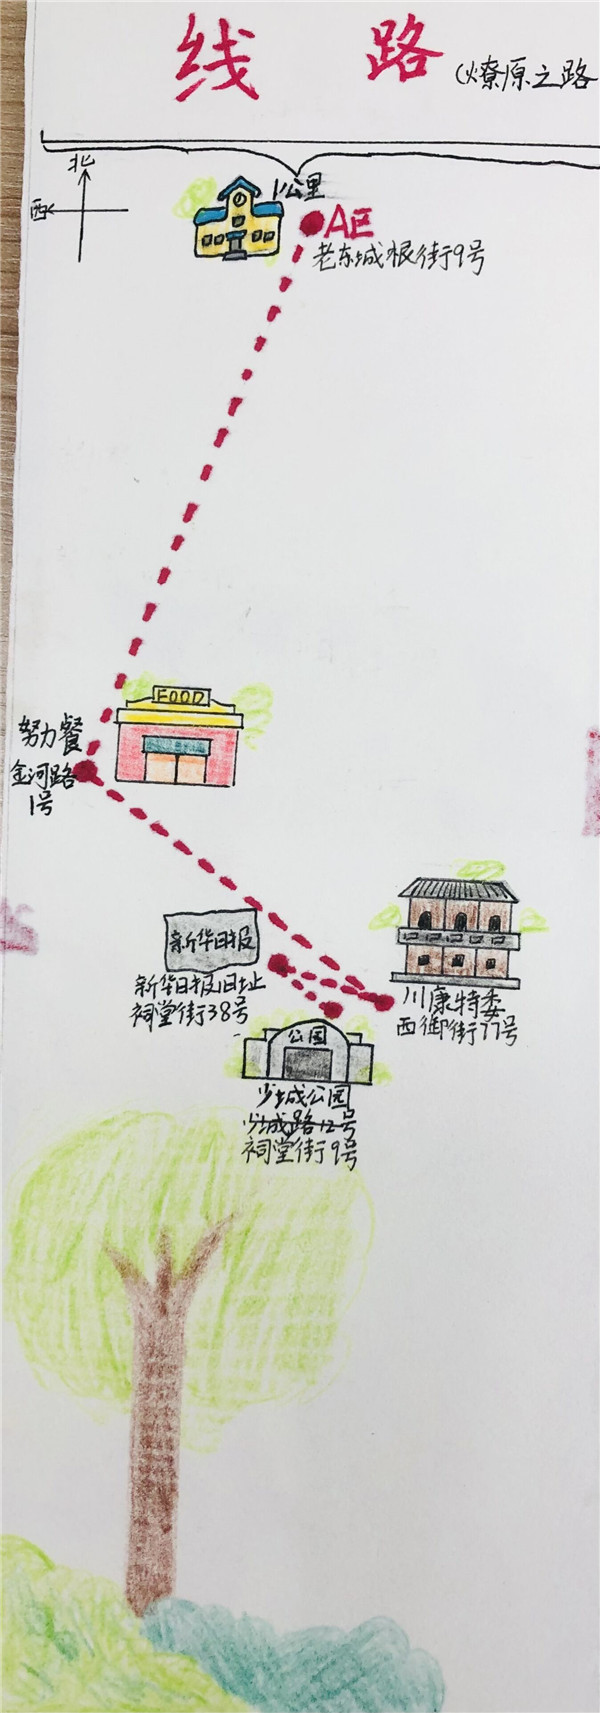 线 路 (燎原之路
北
西
1公里
A区
老东城根街9号
FOOD
努力餐
金河路
1号
新华日报
新华日报旧址
祠堂街38号
川康特委
西御街77号
公园
少城公园
少城路12号
祠堂街9号